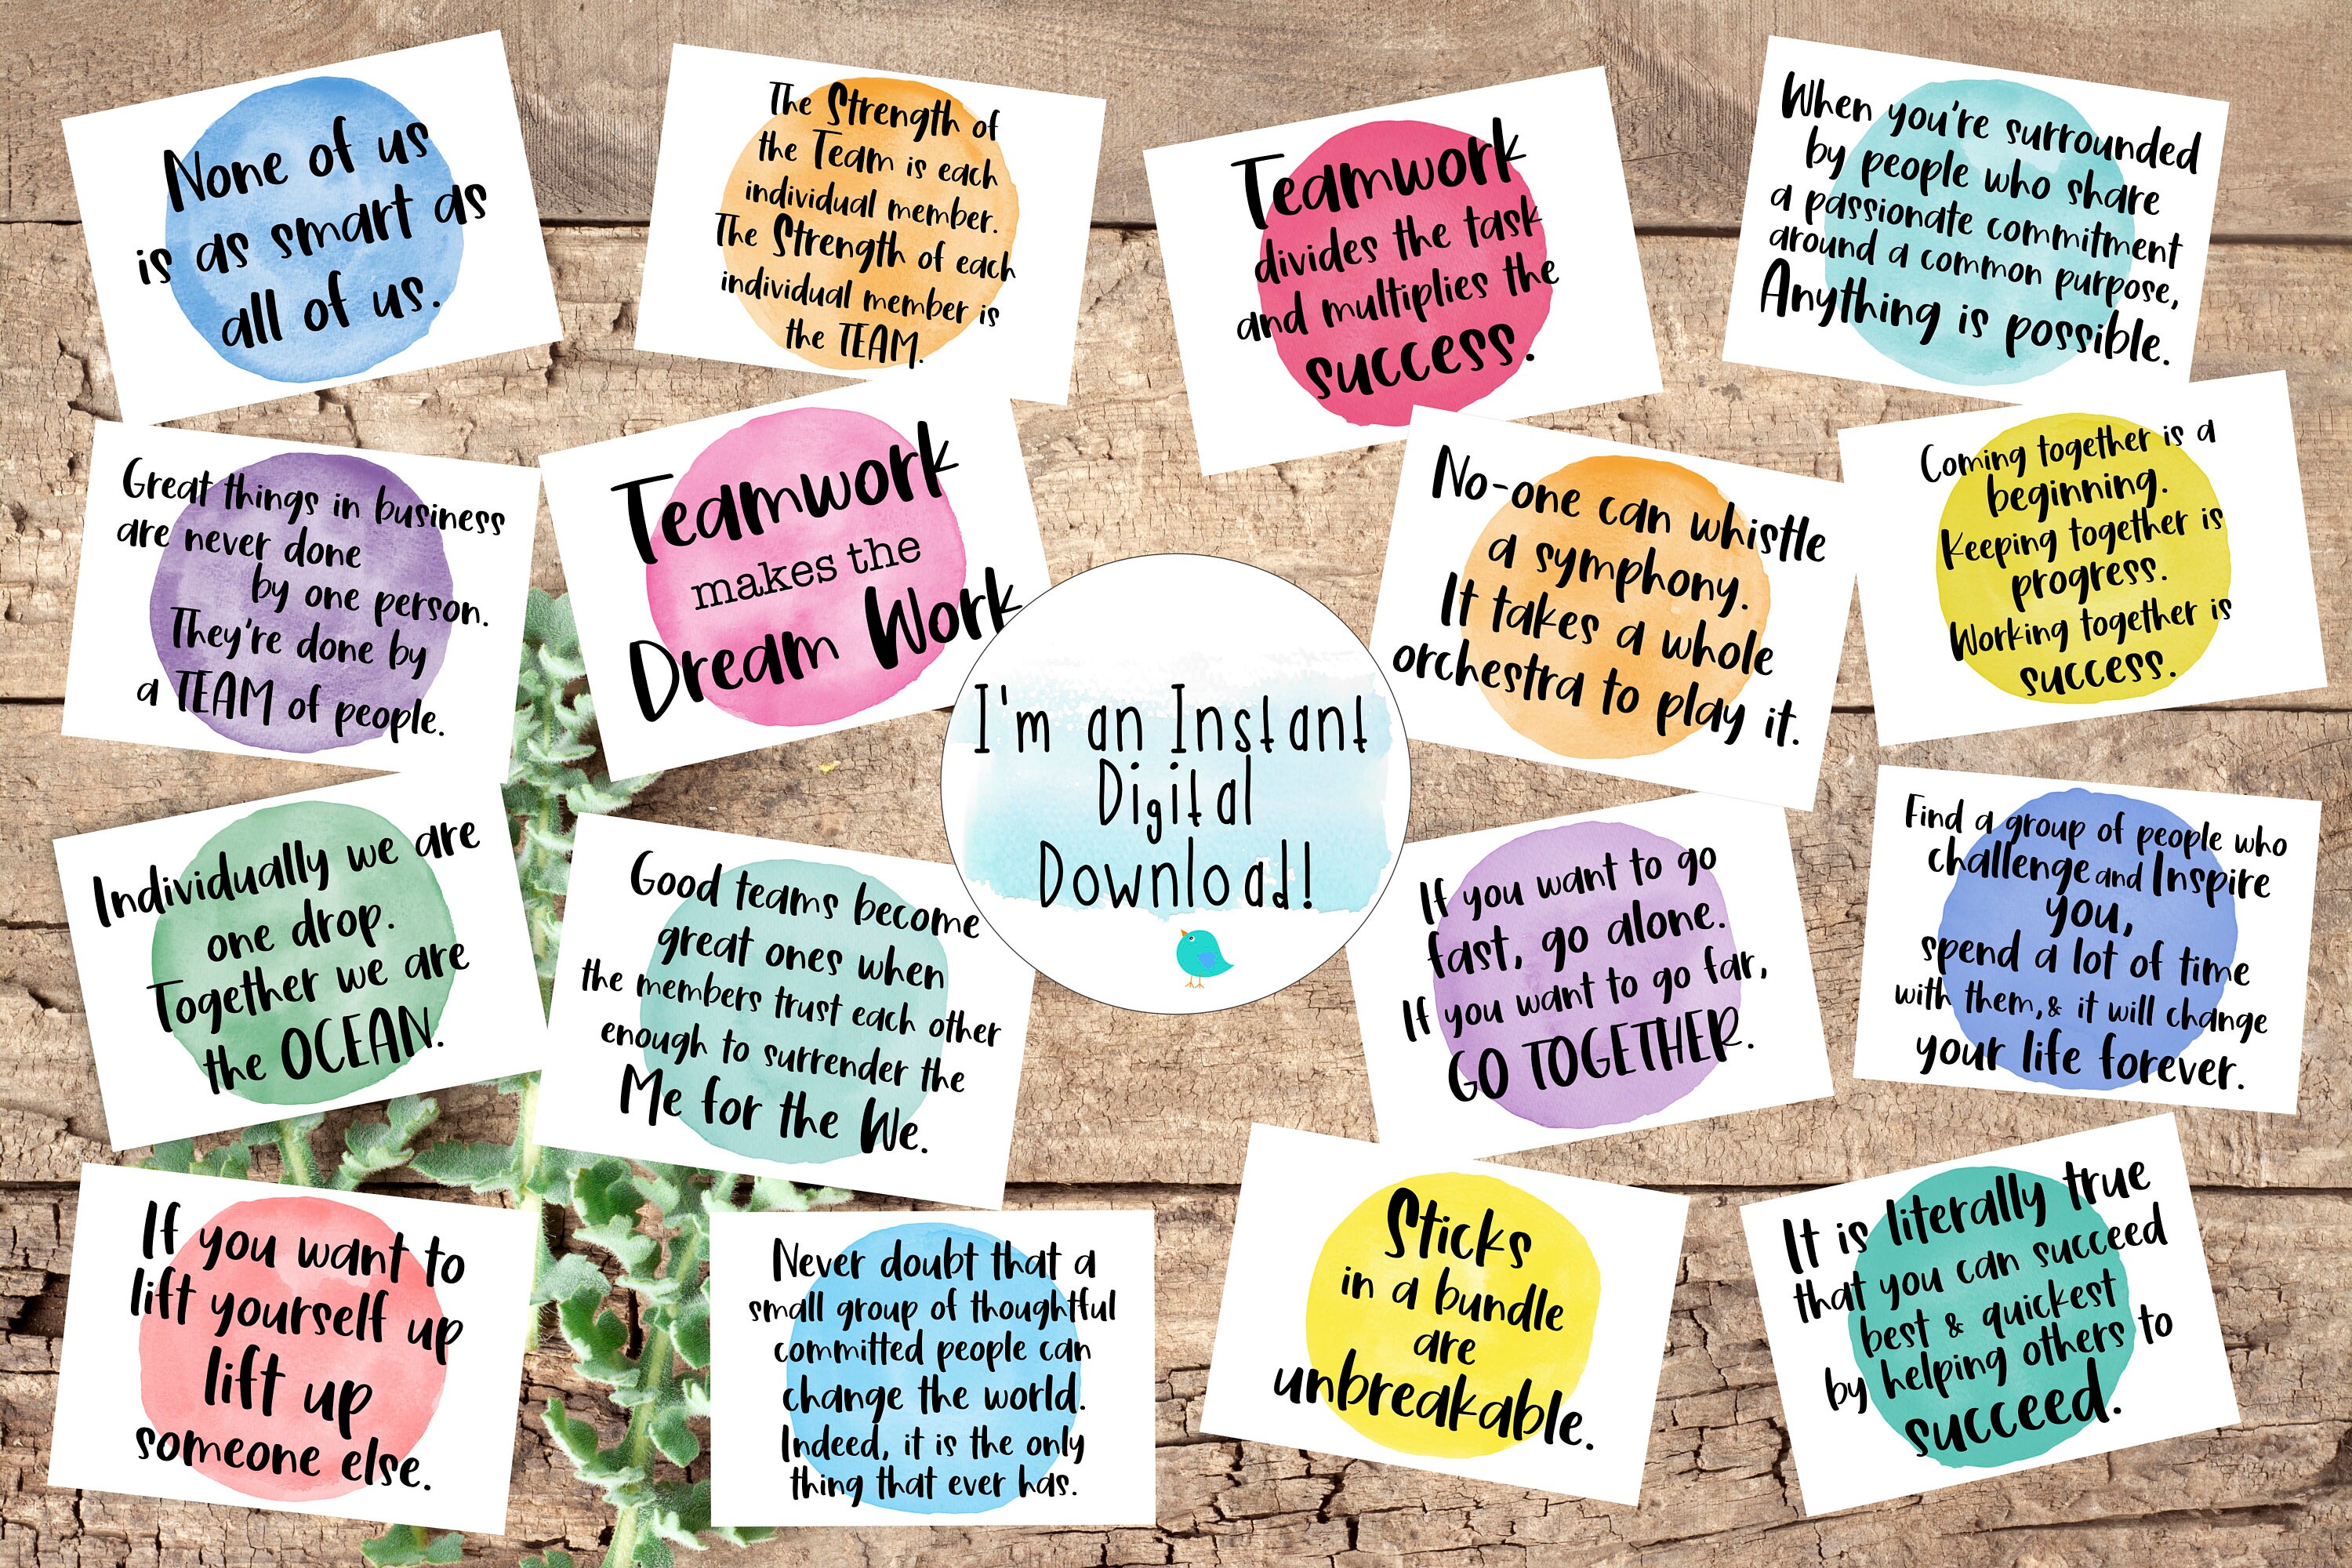 None of us
is as smart as
all of us.
The Strength of
the Team is each
individual member.
The Strength of each
individual member is
the TEAM.
Teamwork
divides the task
and multiplies the
success.
When you're surrounded
by people who share
a passionate commitment
around a common purpose,
Anything is possible.
Great things in business
are never done
by one person.
They're done by
a TEAM of people.
Teamwork
makes the
Dream Work
No-one can whistle
a symphony.
It takes a whole
orchestra to play it.
Coming together is a
beginning.
Keeping together is
progress.
Working together is
success.
I'm an Instant
Digital
Download!
Individually we are
one drop.
Together we are
the OCEAN.
Good teams become
great ones when
the members trust each other
enough to surrender the
Me for the We.
If you want to go
fast, go alone.
If you want to go far,
GO TOGETHER.
Find a group of people who
challenge and Inspire
you,
spend a lot of time
with them, & it will change
your life forever.
If you want to
lift yourself up
lift up
someone else.
Never doubt that a
small group of thoughtful
committed people can
change the world.
Indeed, it is the only
thing that ever has.
Sticks
in a bundle
are
unbreakable.
It is literally true
that you can succeed
best & quickest
by helping others to
succeed.